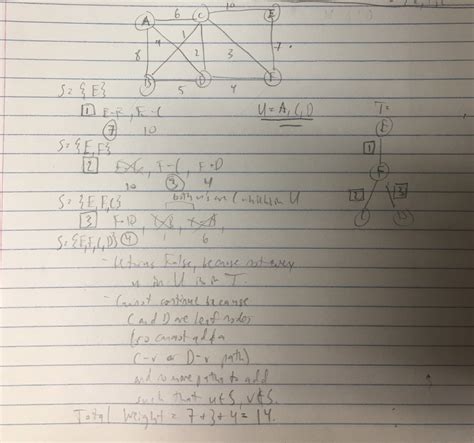 10
A 6 C E
4 1
8 2 3 7
B D F
5 4
S = {E}
1 E-F, E-C
7 10
U = A, C, D
T =
E
1
F
2 3
S = {E, F}
2 E-C, F-C, F-D
10 3 4
S = {E, F, C}
3 F-D
4
S = {E, F, C, D}
- Returns False, because not every
in U is in T.
- Cannot continue because
C and D are leaf nodes
(so cannot add a
C-v or D-v path)
and no more paths to add
such that u∈S, v∉S.
Total Weight = 7+3+4 = 14.